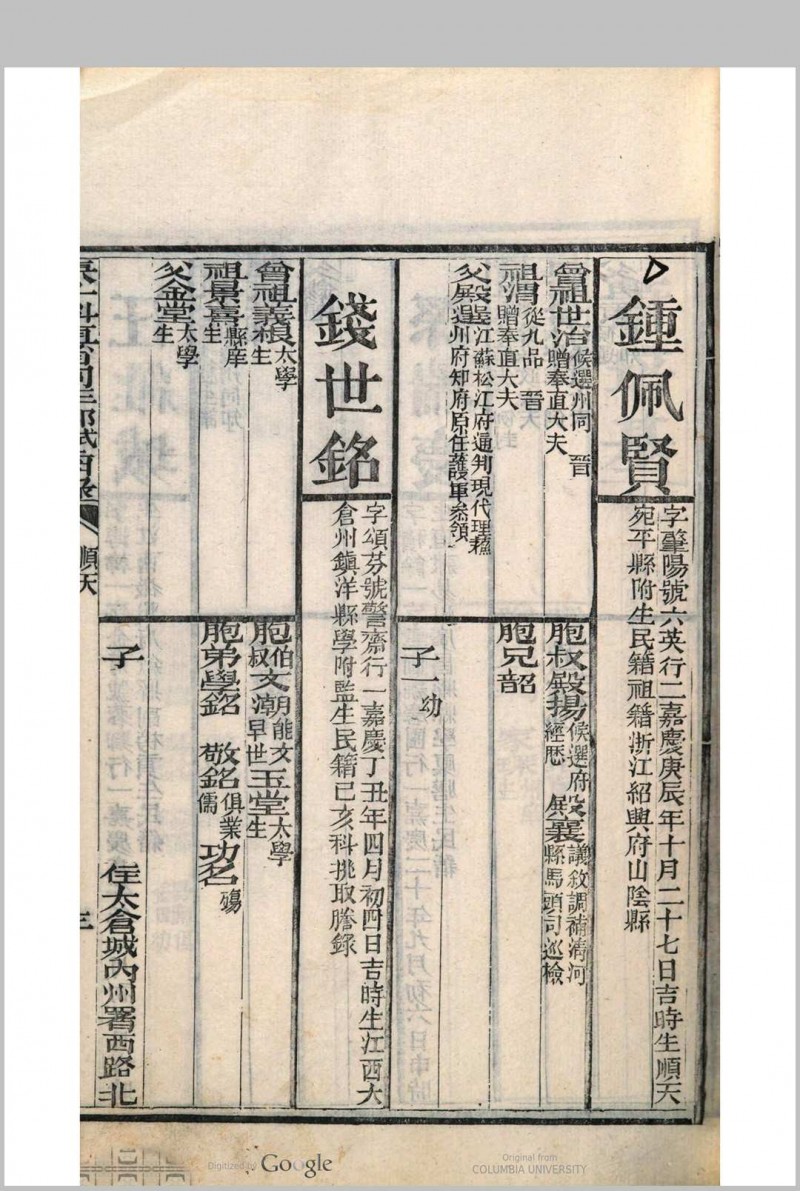 鍾佩賢
字肇陽號六英行二嘉慶庚辰年十月二十七日吉時生順天
宛平縣附生民籍祖籍浙江紹興府山陰縣
曾祖世治候選州同 晉
贈奉直大夫
祖渭從九品 晉
贈奉直大夫
父殿選江蘇松江府通判現代理蘇
州府知府原任護軍參領
胞叔殿揚候選府
經歷
殿襄議敘調補清河
縣馬頭司巡檢
胞兄韶
子一幼
錢世銘
字頌芬號警齋行一嘉慶丁丑年四月初四日吉時生江西太
倉州鎮洋縣學附監生民籍己亥科挑取謄錄
曾祖義楨太學
生
祖景喜縣庠
生
父金堂太學
生
胞伯
叔文潮能文
早世玉堂太學
生
胞弟學銘 敬銘俱業
儒功名殤
子
住太倉城內州署西路北
順天
三
Digitized by Google
Original from
COLUMBIA UNIVERSITY